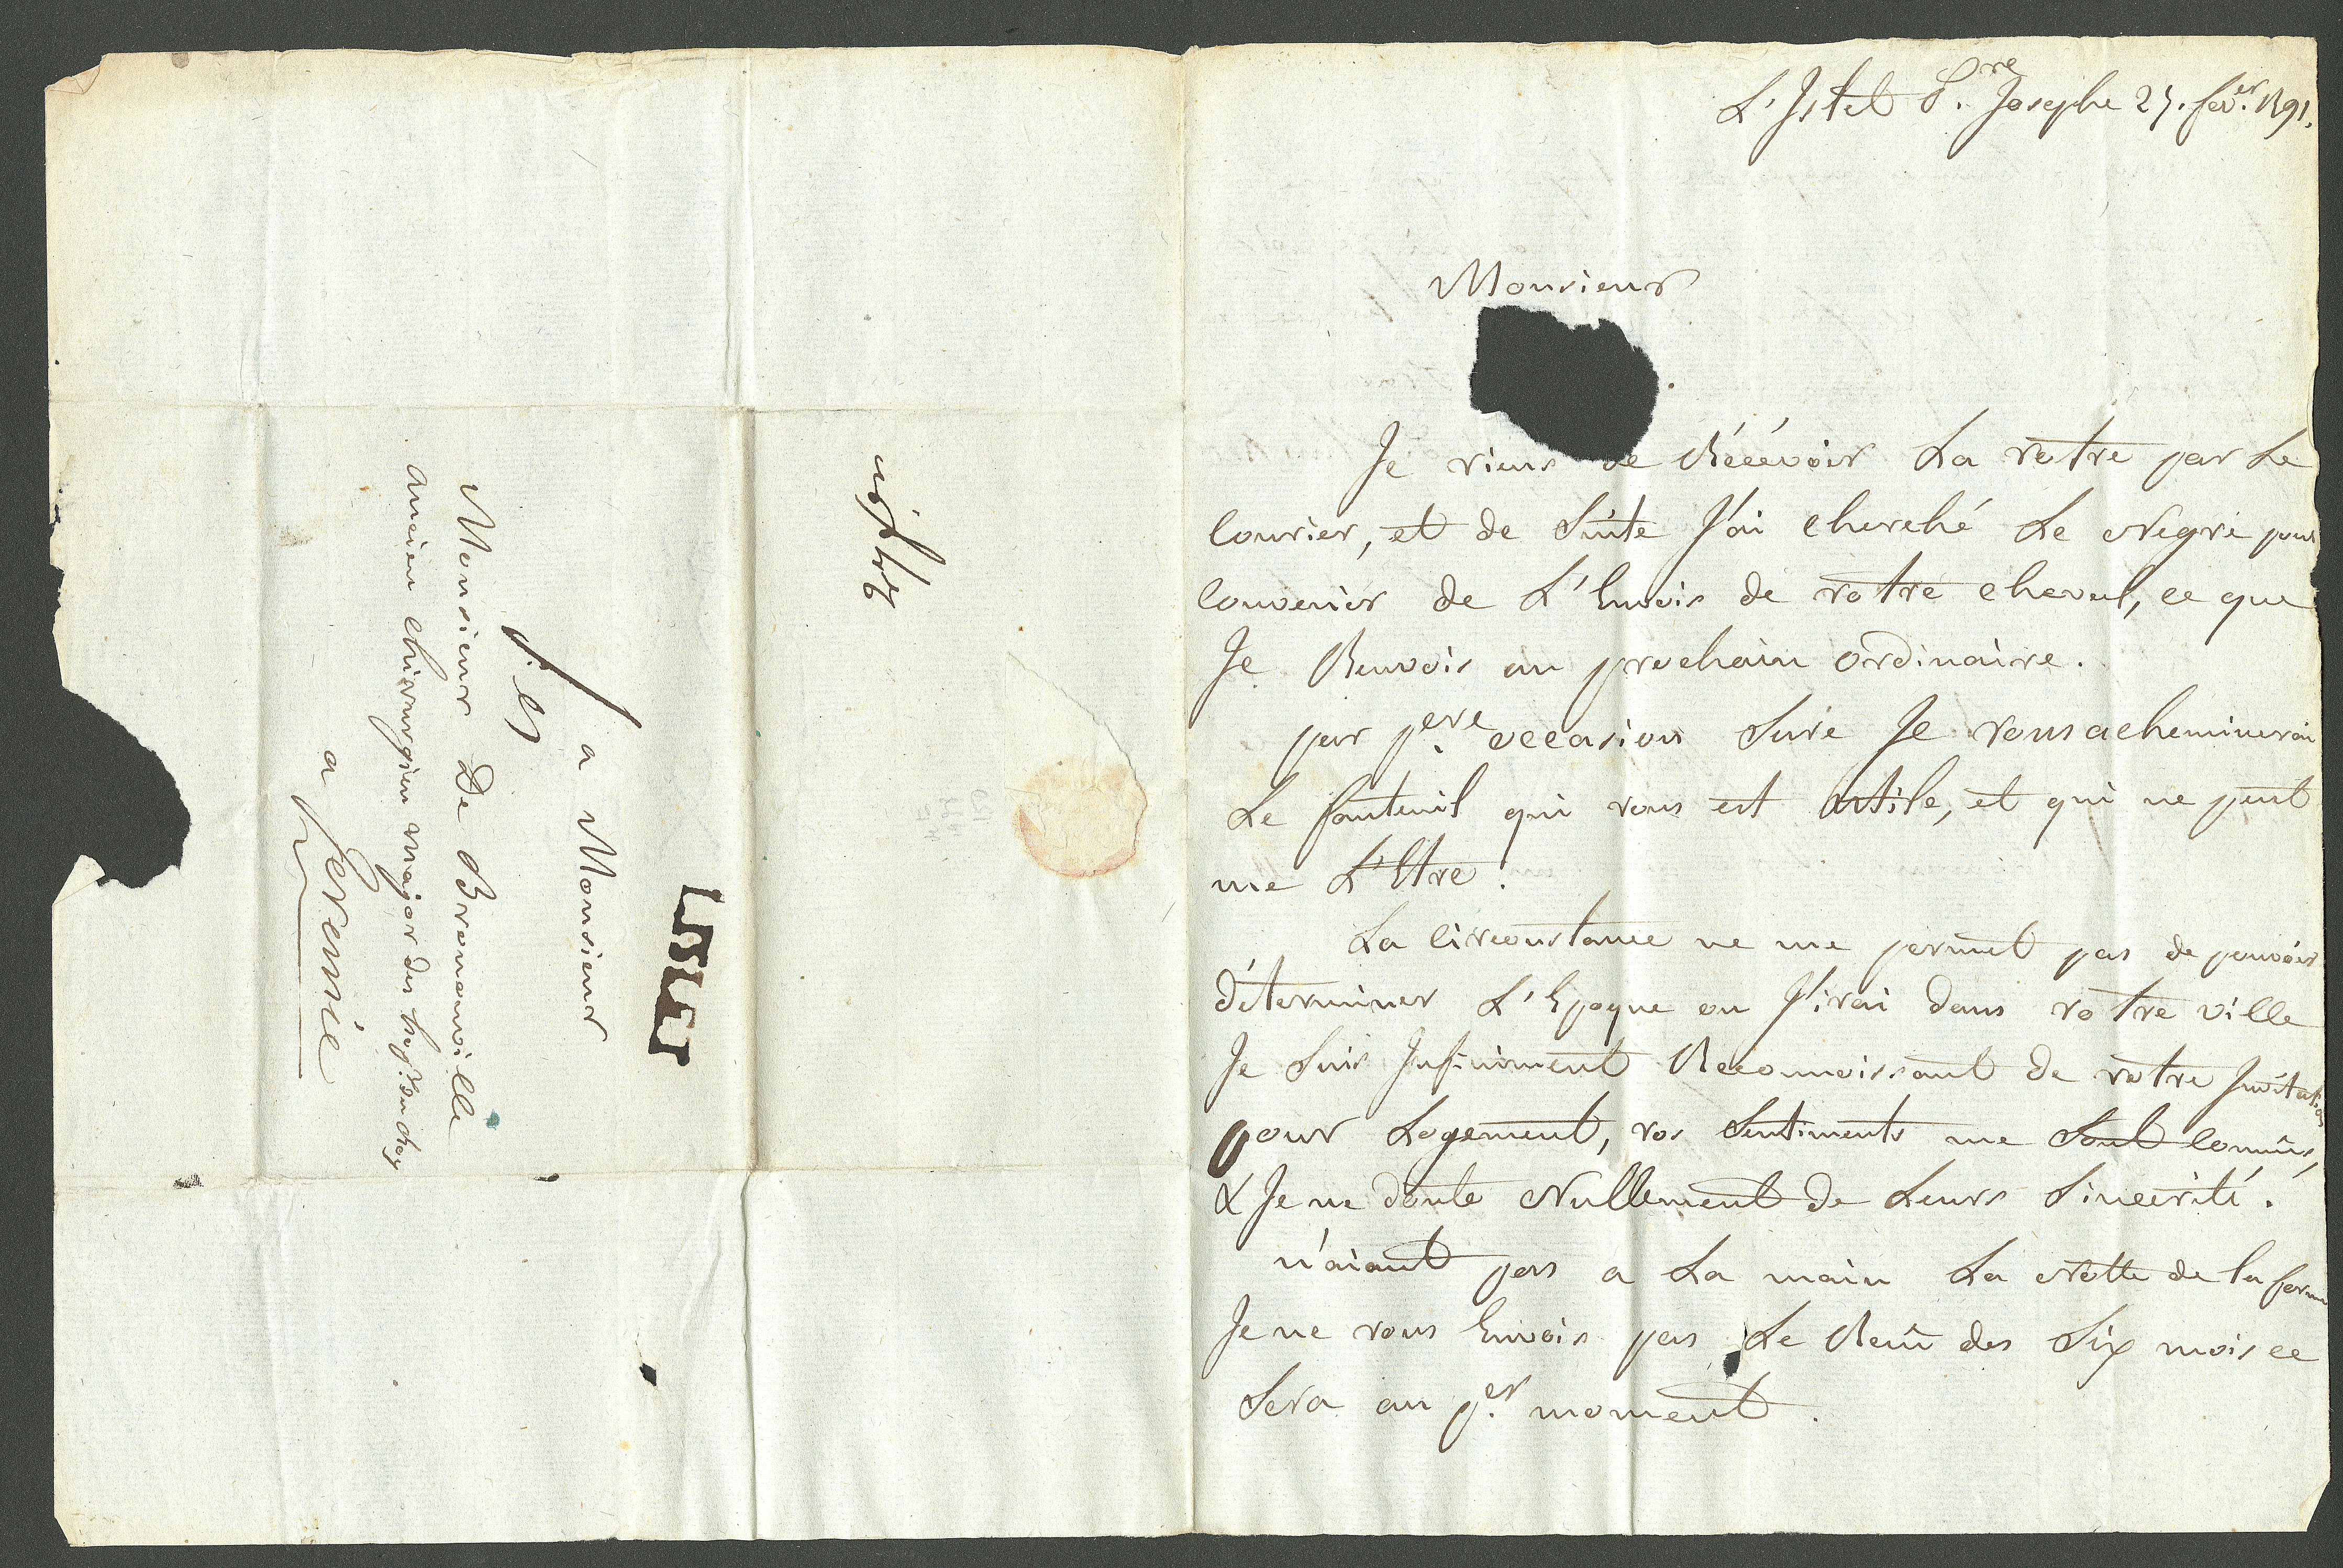 L'Istel P.re Josephe 25. fév.er 1791.
Monsieur
Je viens de Réçévoir La votre par Le
Courier, et de Suite J'ai cherché Le Negre pour
Convenir de L'Envois de votre cheval, ce que
Je Renvois au prochain ordinaire.
par p.ere occasion Sure Je vous acheminerai
Le fauteuil qui vous est utile, et qui ne peut
me L'Etre.
La Circonstance ne me permet pas de pouvoir
déterminer L'Epoque ou J'irai dans votre ville
Je Suis Infiniment Reconnoissant de votre Invitation
pour Logement, vos Sentiments me Sont Connûs,
& Je ne doute Nullement de Leurs Sincerité.
n'aiant pas a La main La Notte de la ferme
Je ne vous Envois pas Le Reçû des Six mois ce
Sera au p.er moment.
LISLET
a Monsieur
Monsieur De Bromanville
Ancien Chirurgien major des du Roy
a Jeremie